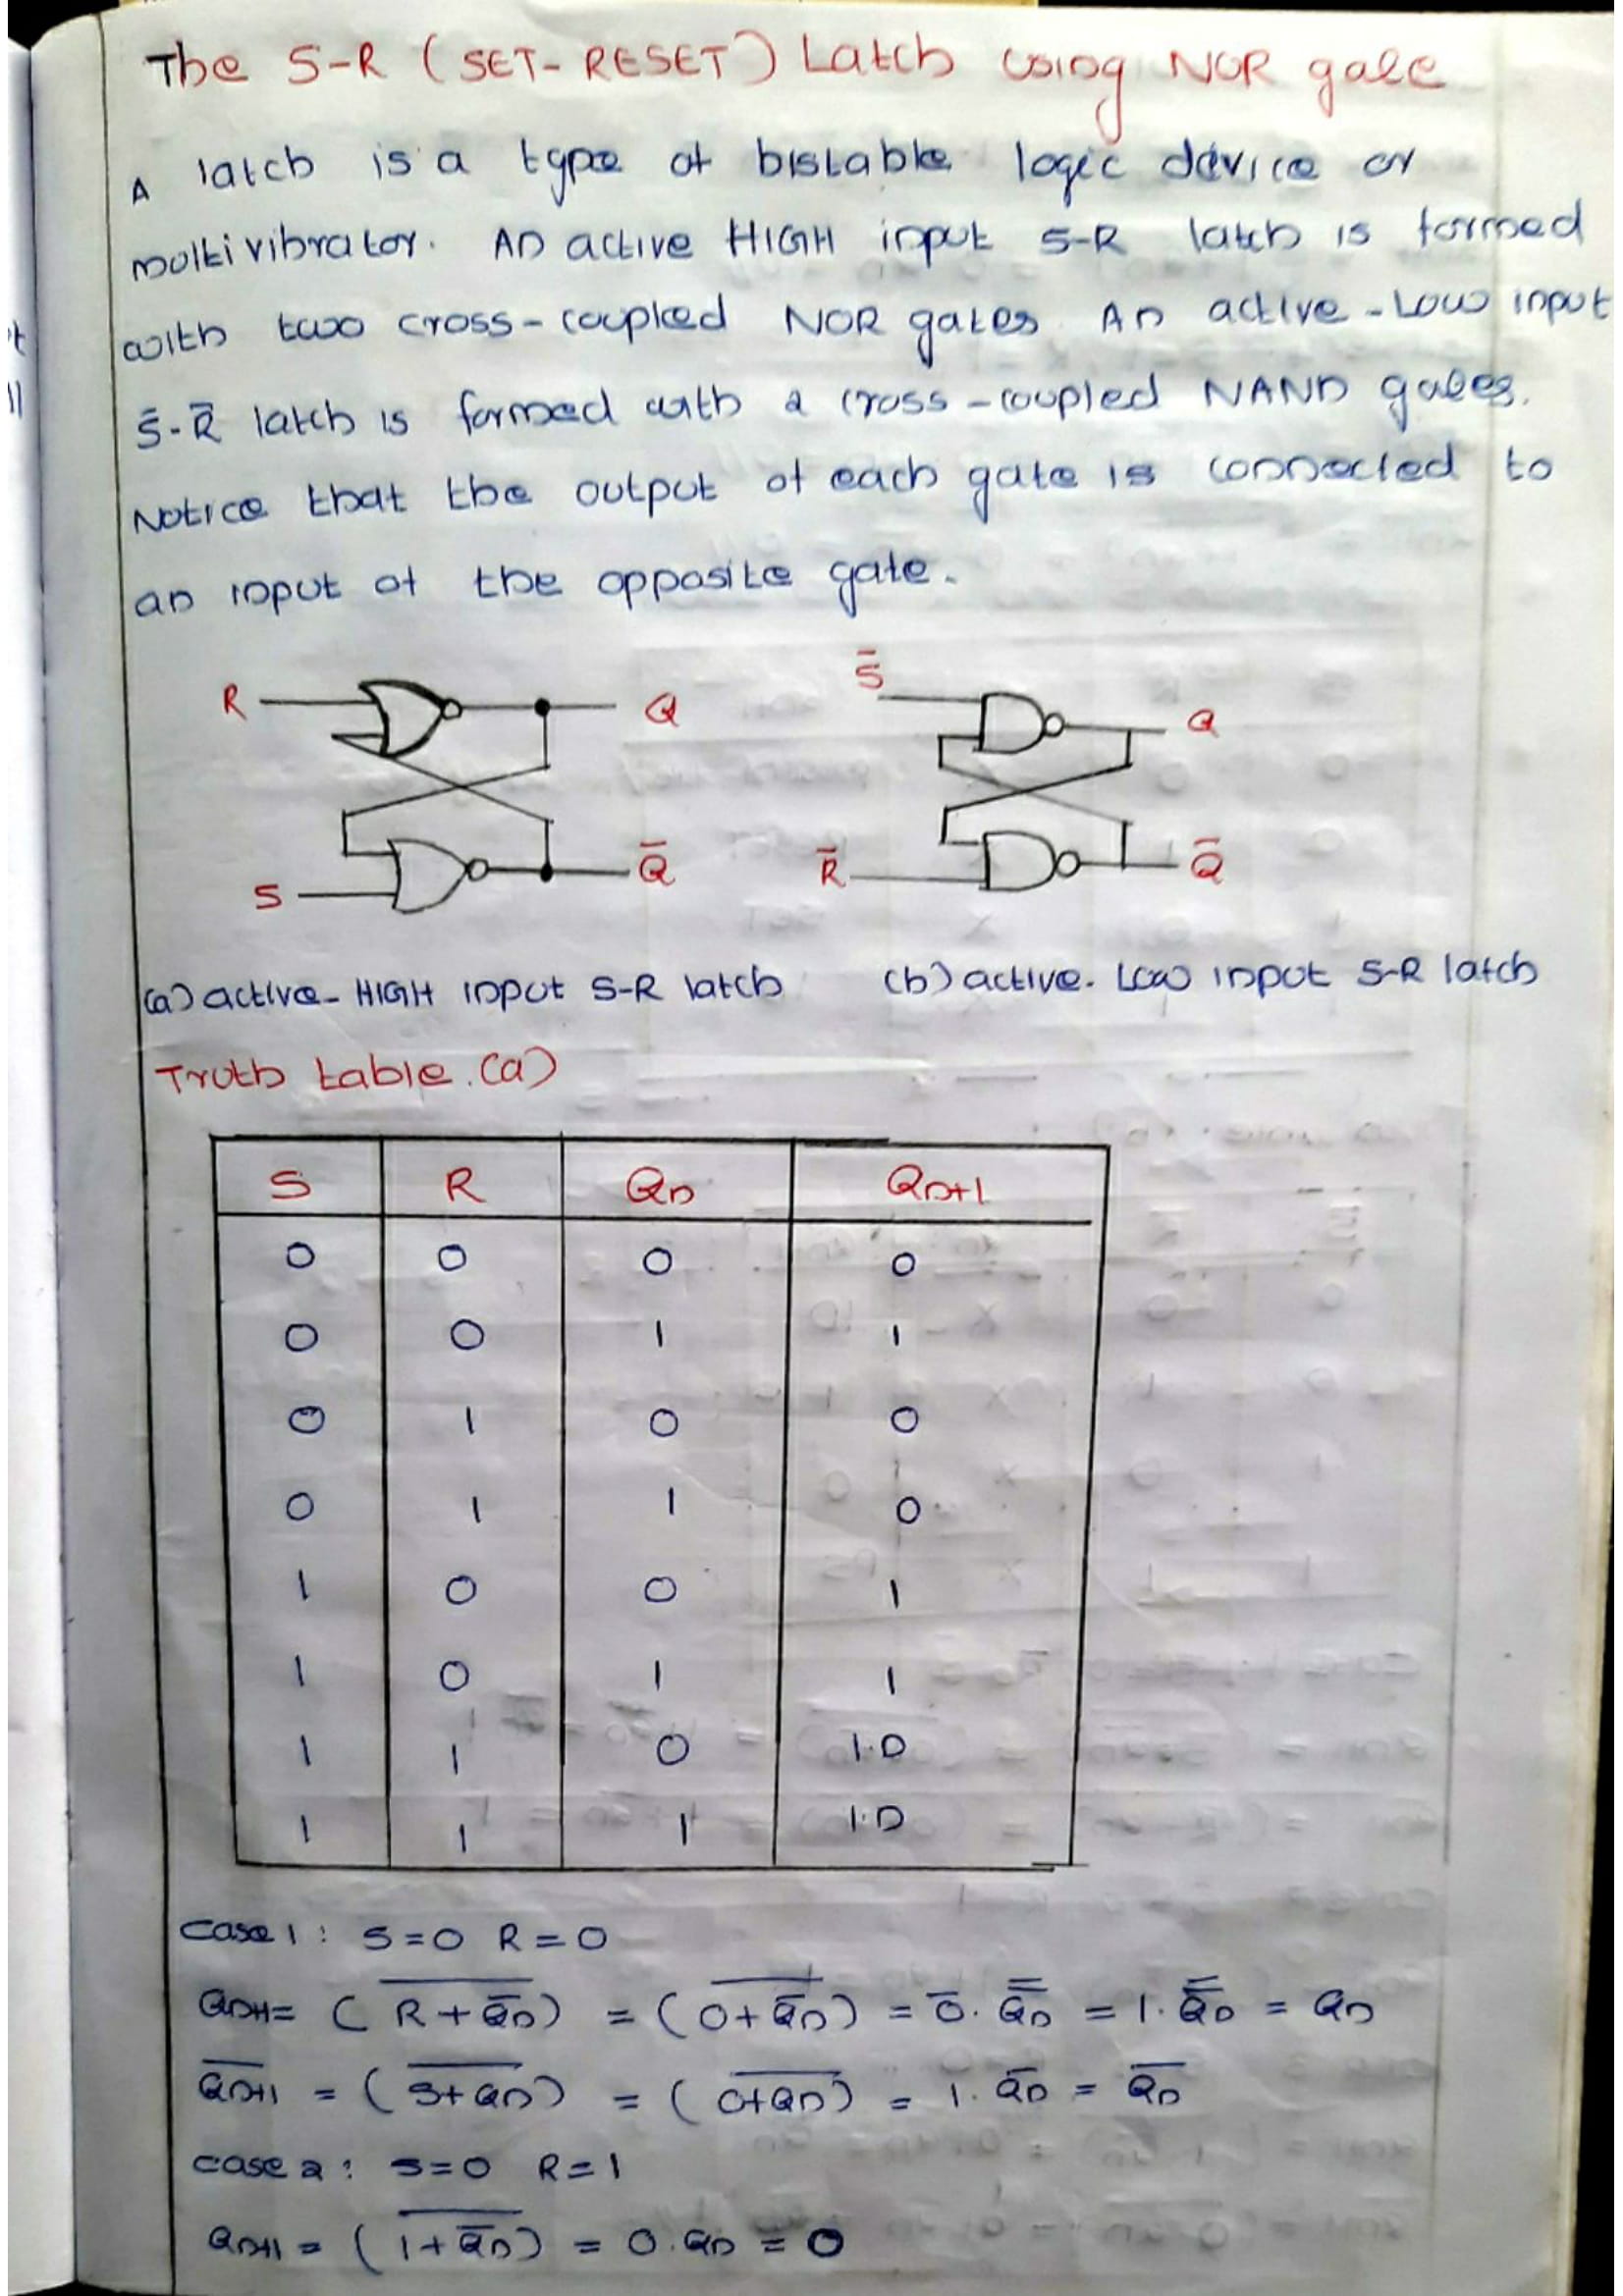 The S-R (SET-RESET) Latch using NOR gate
A latch is a type of bistable logic device or
multivibrator. An active HIGH input S-R latch is formed
with two cross-coupled NOR gates An active-Low input
S̅-R̅ latch is formed with a cross-coupled NAND gates.
Notice that the output of each gate is connected to
an input of the opposite gate.
R Q S̅ Q
S Q̅ R̅ Q̅
(a) active-HIGH input S-R latch (b) active-Low input S-R latch
Truth table.(a)
S R Qn Qn+1
0 0 0 0
0 0 1 1
0 1 0 0
0 1 1 0
1 0 0 1
1 0 1 1
1 1 0 I.D
1 1 1 I.D
case 1: S=0 R=0
Qn+1 = (\overline{R+\overline{Qn}}) = (\overline{0+\overline{Qn}}) = \overline{0}.\overline{\overline{Qn}} = 1.\overline{\overline{Qn}} = Qn
\overline{Qn+1} = (\overline{S+Qn}) = (\overline{0+Qn}) = 1.\overline{Qn} = \overline{Qn}
case 2: S=0 R=1
Qn+1 = (\overline{1+\overline{Qn}}) = 0.Qn = 0